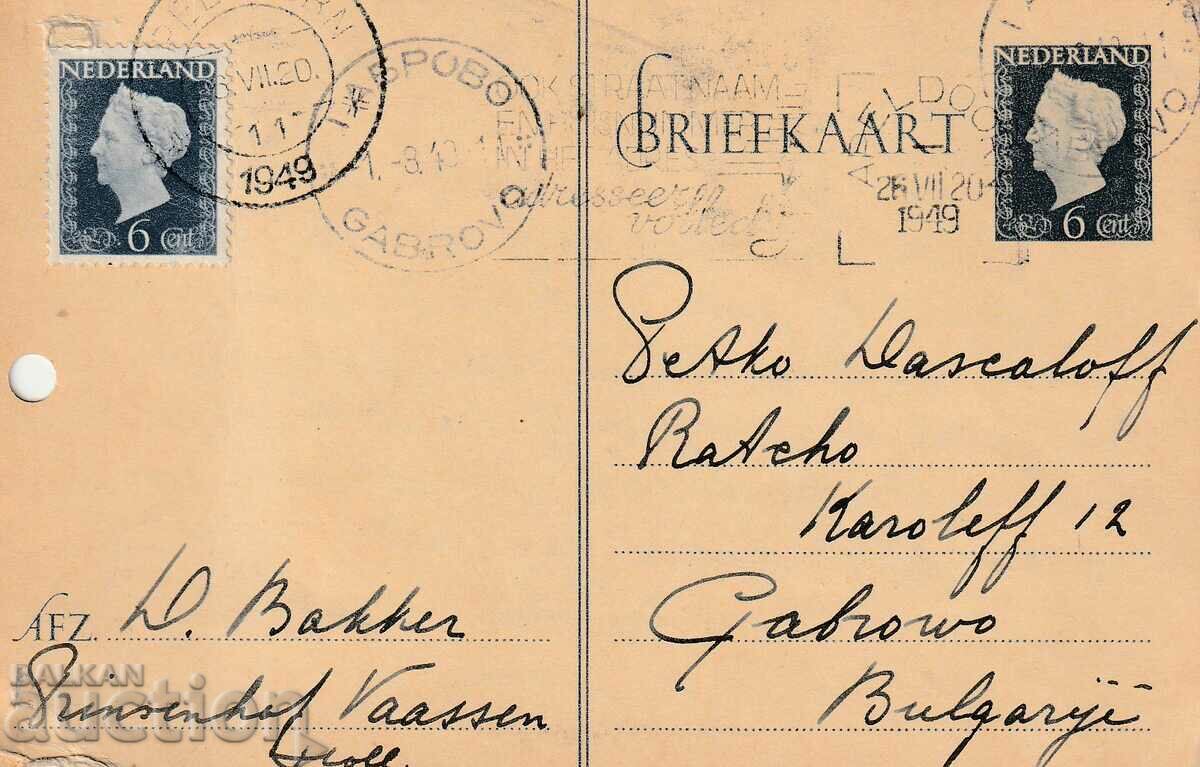 NEDERLAND
6 Cent
VII.20.
1949
ГАБРОВО
GABROVO
STRAATNAAM
adresseer
volledig
BRIEFKAART
26 VII 20
1949
NEDERLAND
6 Cent
Petko Dascaloff
Ratcho
Karoleff 12
Gabrowo
Bulgarije
AFZ. D. Bakker
Prinsenhof Vaassen
Holl.
BALKAN
auction